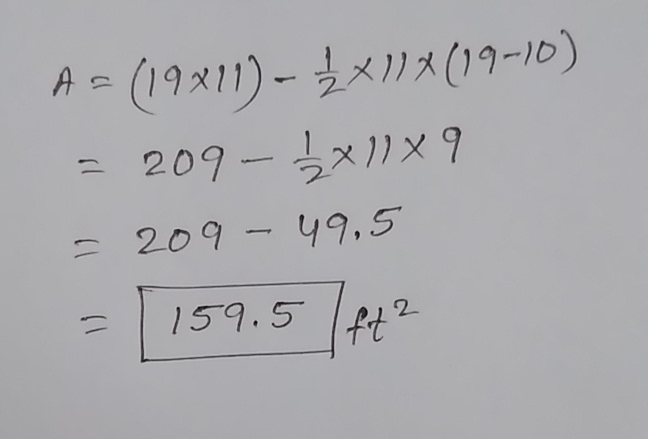 A = (19×11) - 1/2 × 11 × (19-10)
= 209 - 1/2 × 11 × 9
= 209 - 49.5
= 159.5 ft²